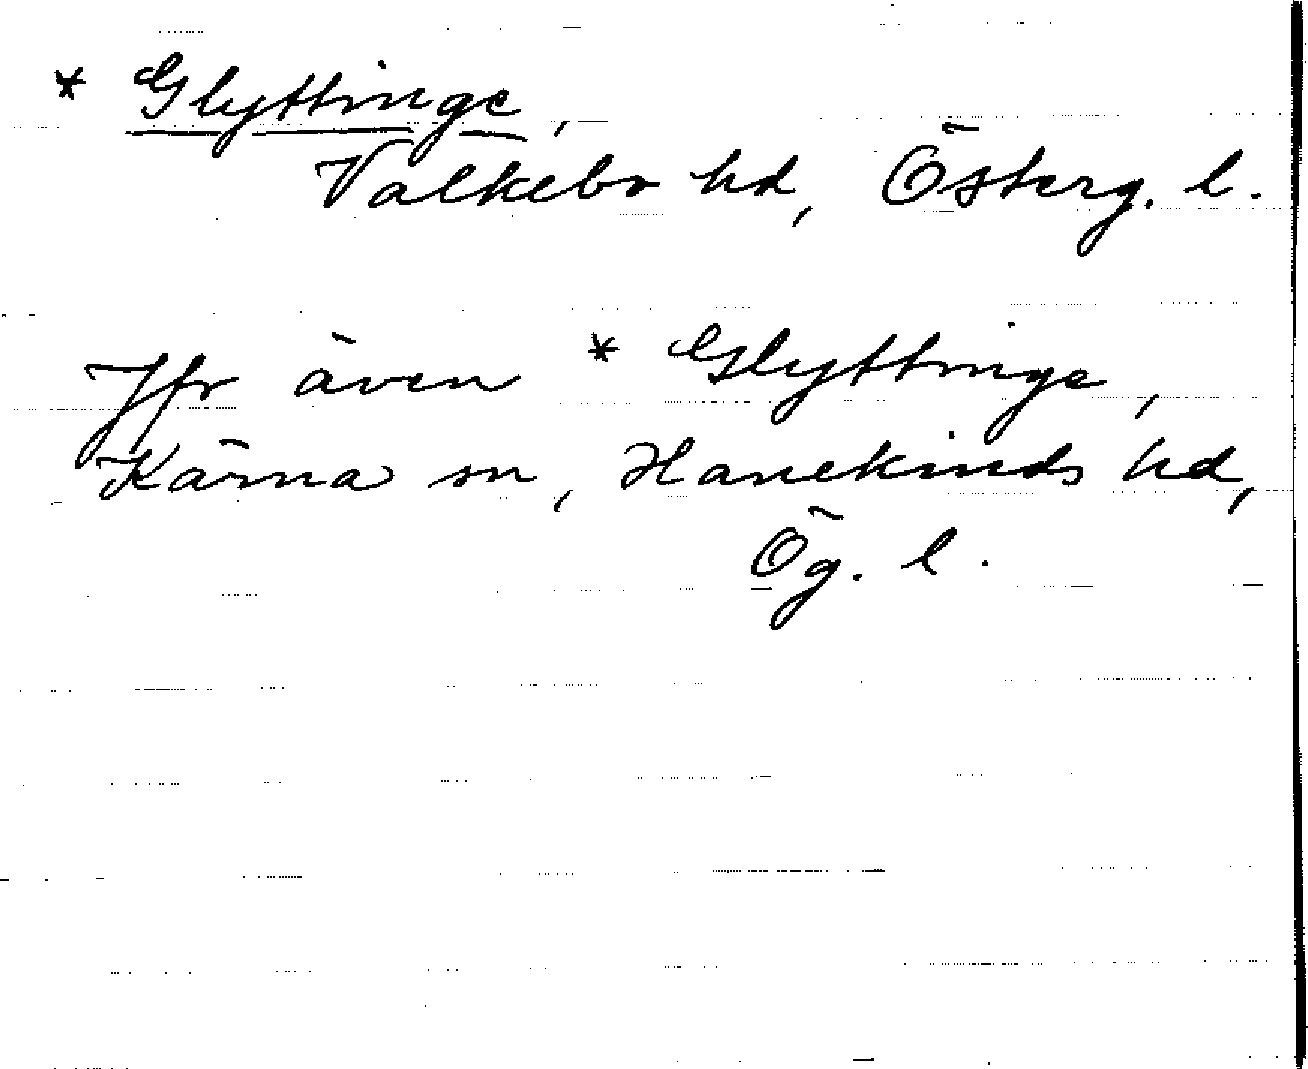 * Glyttinge,
Valkebo hd, Österg. l.
Jfr även * Glyttinge,
Kärna sn, Hanekinds hd,
Ög. l.